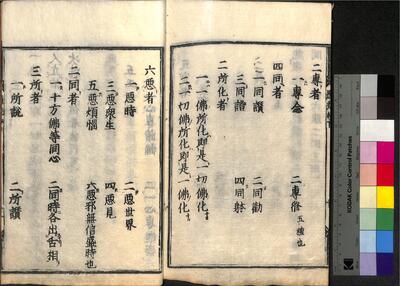 二專者
一、專念 二、專修 五種也
四同者
一、同讚 二、同勸
三、同證 四、同躰
二所化者
一、一切佛所化、即是一佛化。
二、一佛所化、即是一切佛化。
六惡者
一、惡時 二、惡世界
三、惡衆生 四、惡見
五、惡煩惱 六、惡邪無信盛時也
二同者
一、十方佛等同心 二、同時各出舌相
三所者
一、所說 二、所讚
KODAK Color Control Patches